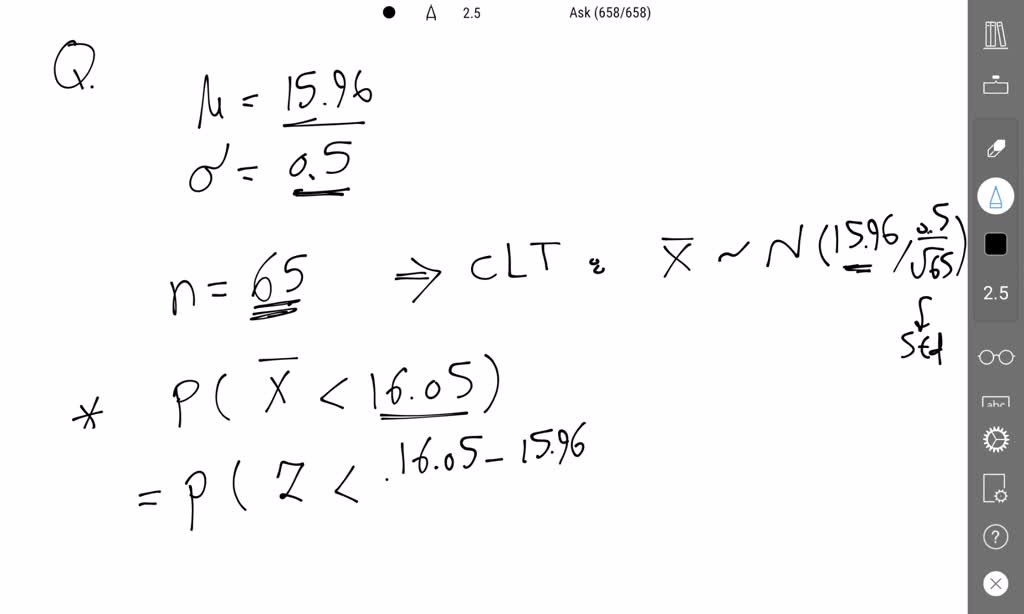 2.5 Ask (658/658)
Q.
μ = 15.96
σ = 0.5
n = 65 ⇒ CLT : X̄ ~ N (15.96, 0.5/√65)
↓
Std
* P( X̄ < 16.05)
= P( Z < 16.05 - 15.96
2.5
abc
?